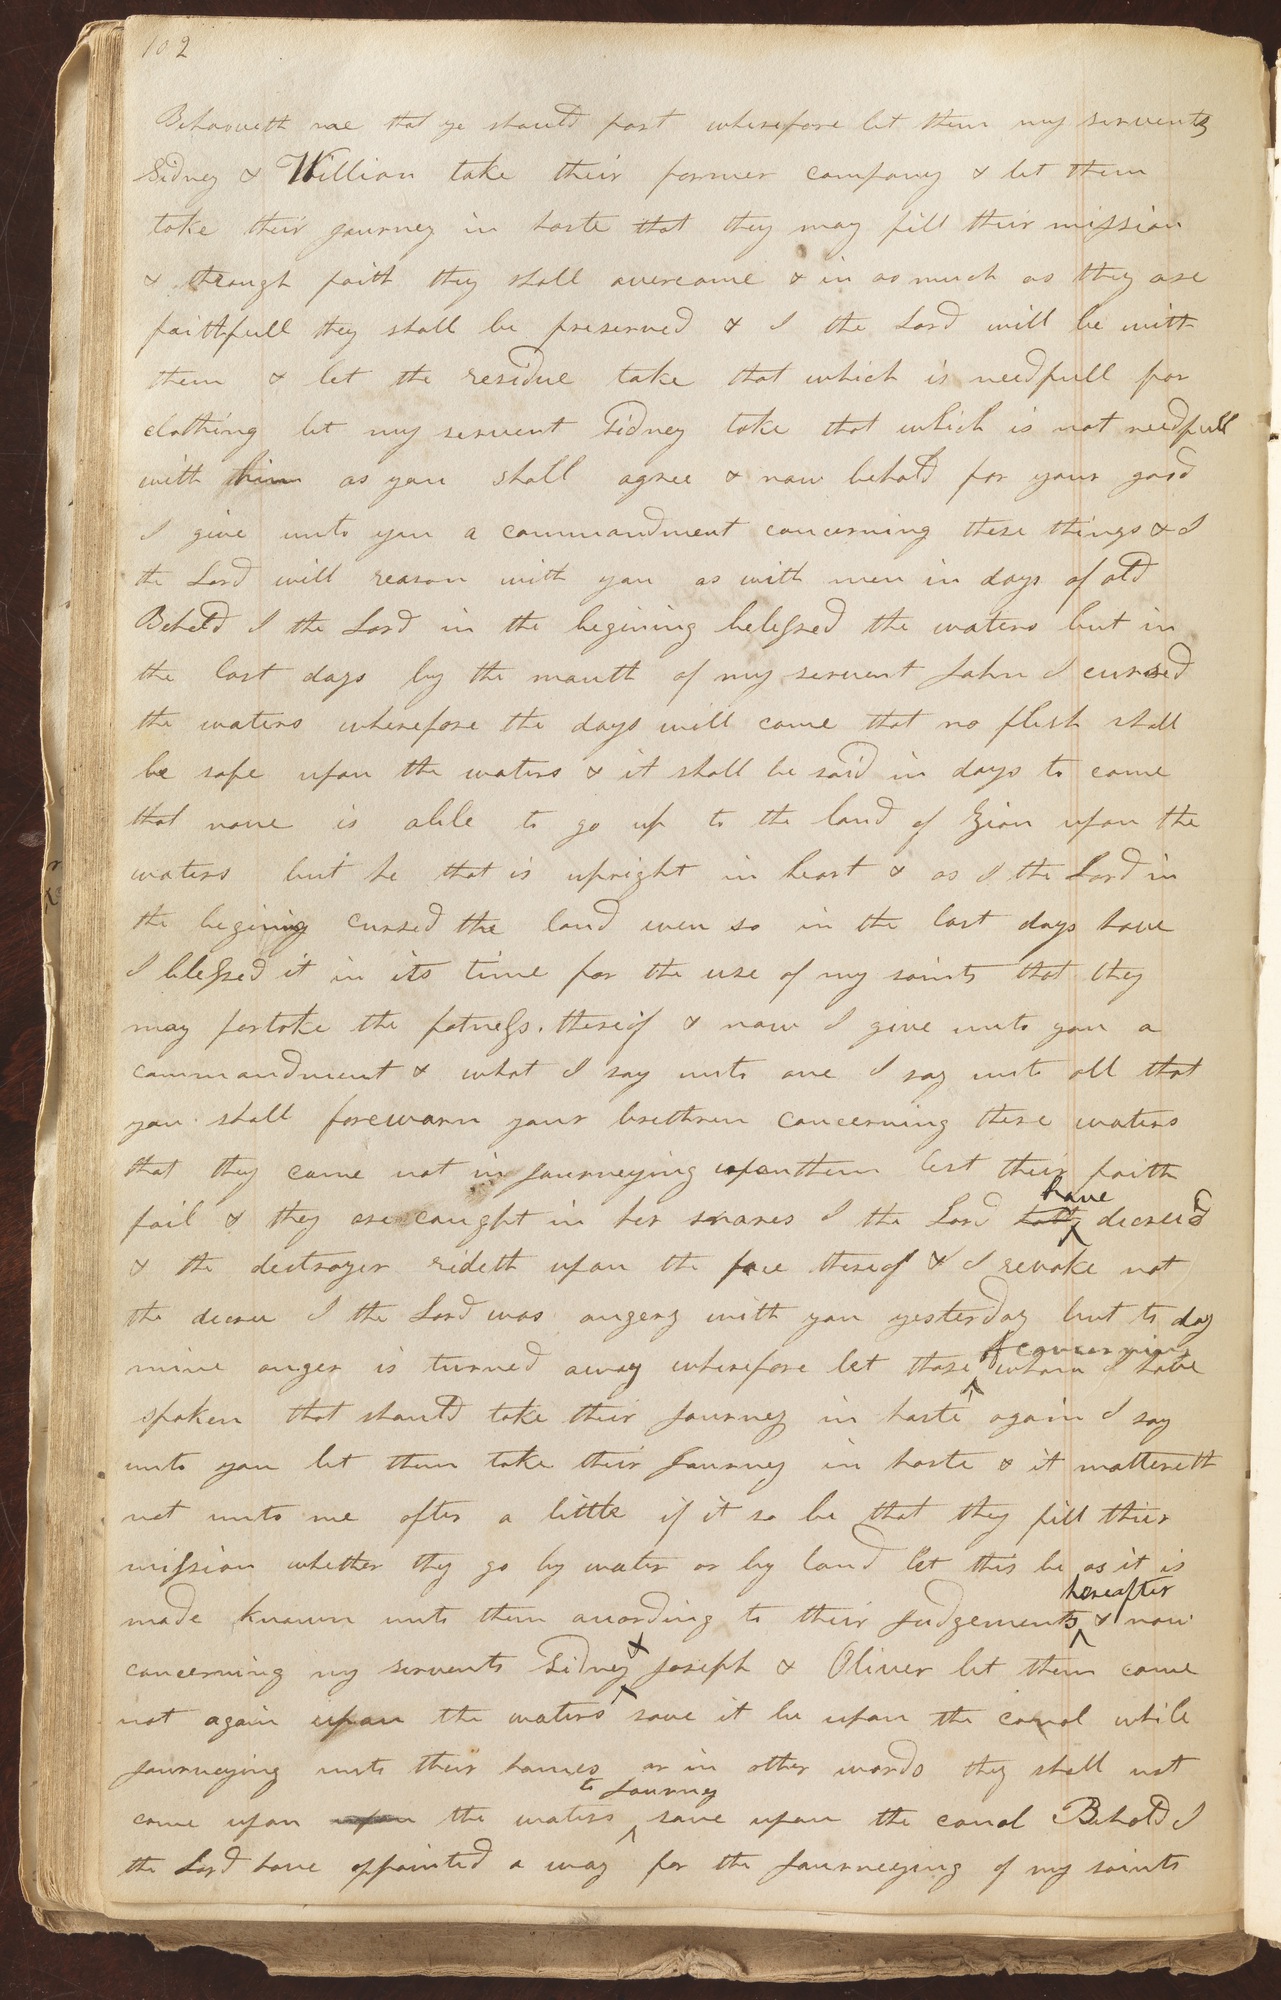 102
Behooveth me that ye should part wherefore let them my servents
Sidney & William take their former company & let them
take their journey in haste that they may fill their mission
& through faith they shall overcome & in as much as they are
faithfull they shall be preserved & I the Lord will be with
them & let the residue take that which is needfull for
clothing let my servent Sidney take that which is not needfull
with him as you shall agree & now behold for your good
I give unto you a commandment concerning these things & I
the Lord will reason with you as with men in days of old
Behold I the Lord in the begining belessed the waters but in
the last days by the mouth of my servent John I cursed
the waters wherefore the days will come that no flesh shall
be safe upon the waters & it shall be said in days to come
that none is able to go up to the land of Zion upon the
waters but he that is upright in heart & as I the Lord in
the begining cursed the land even so in the last days have
I blessed it in its time for the use of my saints that they
may partake the fatness. thereof & now I give unto you a
commandment & what I say unto one I say unto all that
you shall forewarn your brethren concerning these waters
that they come not in Journeying upon them lest their faith
have
fail & they are caught in her snares I the Lord hath decreed
& the destroyer rideth upon the face thereof & I revoke not
the decree I the Lord was angery with you yesterday but to day
concerning
mine anger is turned away wherefore let those whom I have
spoken that should take their Journey in haste again I say
unto you let them take their Journey in haste & it mattereth
not unto me after a little if it so be that they fill thier
mission whether they go by water or by land let this be as it is
hereafter
made known unto them acording to their Judgements & now
concerning my servents Sidney & Joseph & Oliver let them come
not again upon the waters save it be upon the canal while
Journeying unto their homes or in other words they shall not
to Journey
come upon upon the waters save upon the canal Behold I
the Lord have appointed a way for the Journeying of my saints